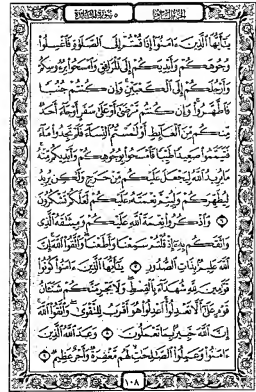 الجزء السادس ٥ سورة المائدة
يَٰٓأَيُّهَا ٱلَّذِينَ ءَامَنُوٓا۟ إِذَا قُمْتُمْ إِلَى ٱلصَّلَوٰةِ فَٱغْسِلُوا۟
وُجُوهَكُمْ وَأَيْدِيَكُمْ إِلَى ٱلْمَرَافِقِ وَٱمْسَحُوا۟ بِرُءُوسِكُمْ
وَأَرْجُلَكُمْ إِلَى ٱلْكَعْبَيْنِ وَإِن كُنتُمْ جُنُبًا
فَٱطَّهَّرُوا۟ وَإِن كُنتُم مَّرْضَىٰٓ أَوْ عَلَىٰ سَفَرٍ أَوْ جَآءَ أَحَدٌ
مِّنكُم مِّنَ ٱلْغَآئِطِ أَوْ لَٰمَسْتُمُ ٱلنِّسَآءَ فَلَمْ تَجِدُوا۟ مَآءً
فَتَيَمَّمُوا۟ صَعِيدًا طَيِّبًا فَٱمْسَحُوا۟ بِوُجُوهِكُمْ وَأَيْدِيكُم مِّنْهُ
مَا يُرِيدُ ٱللَّهُ لِيَجْعَلَ عَلَيْكُم مِّنْ حَرَجٍ وَلَٰكِن يُرِيدُ
لِيُطَهِّرَكُمْ وَلِيُتِمَّ نِعْمَتَهُۥ عَلَيْكُمْ لَعَلَّكُمْ تَشْكُرُونَ
٦ وَٱذْكُرُوا۟ نِعْمَةَ ٱللَّهِ عَلَيْكُمْ وَمِيثَٰقَهُ ٱلَّذِى
وَاثَقَكُم بِهِۦٓ إِذْ قُلْتُمْ سَمِعْنَا وَأَطَعْنَا وَٱتَّقُوا۟ ٱللَّهَ إِنَّ
ٱللَّهَ عَلِيمٌۢ بِذَاتِ ٱلصُّدُورِ ٧ يَٰٓأَيُّهَا ٱلَّذِينَ ءَامَنُوا۟ كُونُوا۟
قَوَّٰمِينَ لِلَّهِ شُهَدَآءَ بِٱلْقِسْطِ وَلَا يَجْرِمَنَّكُمْ شَنَـَٔانُ
قَوْمٍ عَلَىٰٓ أَلَّا تَعْدِلُوا۟ ٱعْدِلُوا۟ هُوَ أَقْرَبُ لِلتَّقْوَىٰ وَٱتَّقُوا۟ ٱللَّهَ
إِنَّ ٱللَّهَ خَبِيرٌۢ بِمَا تَعْمَلُونَ ٨ وَعَدَ ٱللَّهُ ٱلَّذِينَ
ءَامَنُوا۟ وَعَمِلُوا۟ ٱلصَّٰلِحَٰتِ لَهُم مَّغْفِرَةٌ وَأَجْرٌ عَظِيمٌ ٩
١٠٨